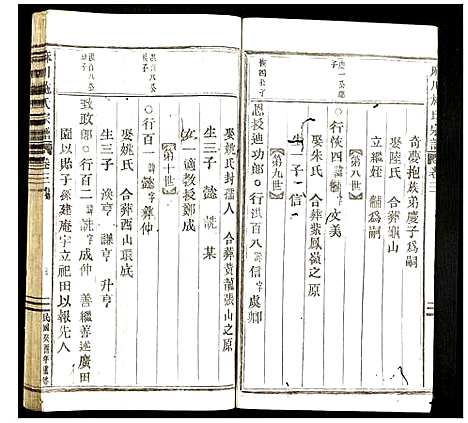 麻川施氏宗譜 卷三
奇夢抱族弟慶子為嗣
娶陸氏 合葬龜山
立繼姪 為嗣
【第八世】
行恢四 文美
娶朱氏 合葬紫鳳嶺之原
生一子 信
【第九世】
恩授迪功郎 行洪百八 諱信 字虞卿
娶姚氏封孺人 合葬黃龍張山之原
生三子 懿 詵 某
女一 適教授鄭成
【第十世】
行百一 諱懿 葬
娶姚氏 合葬西山環底
生三子 渙亨 謙亨 升亨
致政郎 行百二 諱詵 字成仲 善繼善述廣田
園以貽子孫建庵宇立祀田以報先人
麻川施氏宗譜 卷三
民國癸酉年重修